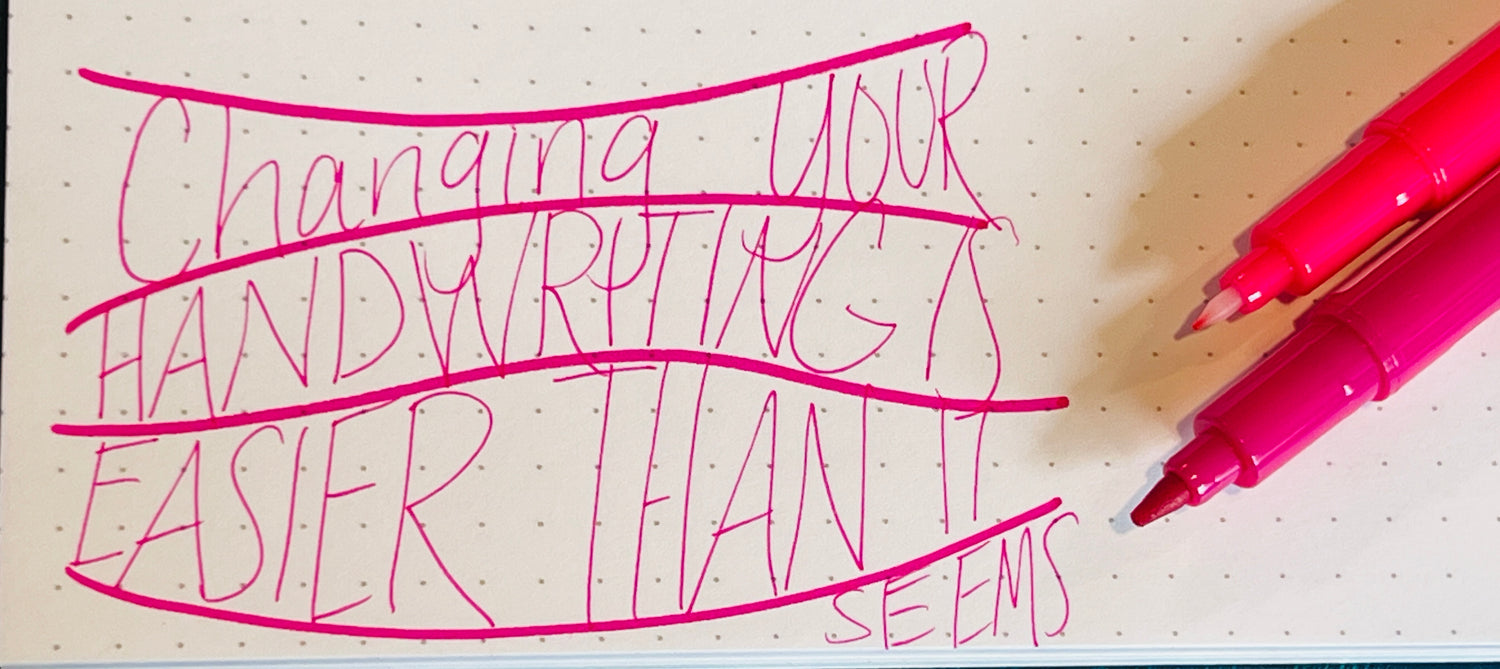 Changing YOUR
HANDWRITING IS
EASIER THAN IT
SEEMS